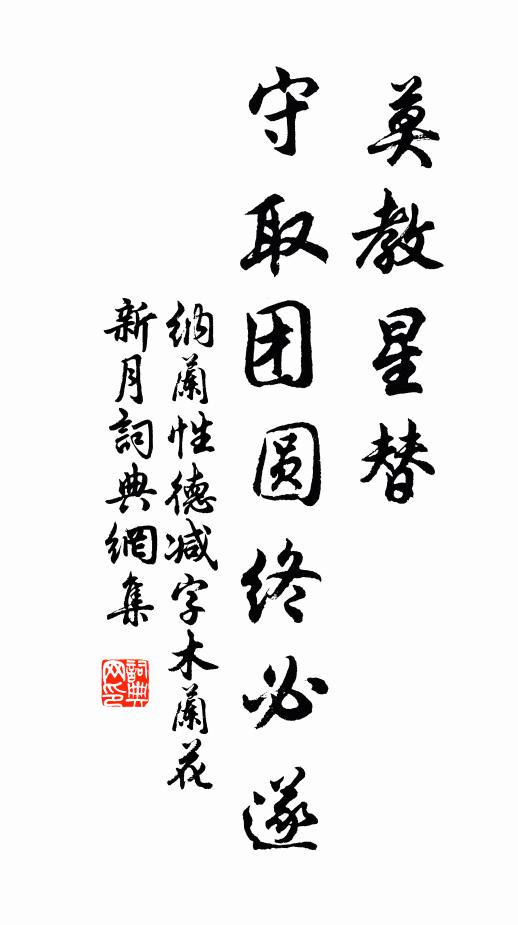 莫教星替
守取团圆终必遂
纳蘭性德减字木蘭花
新月詞典網集
詞典
网印